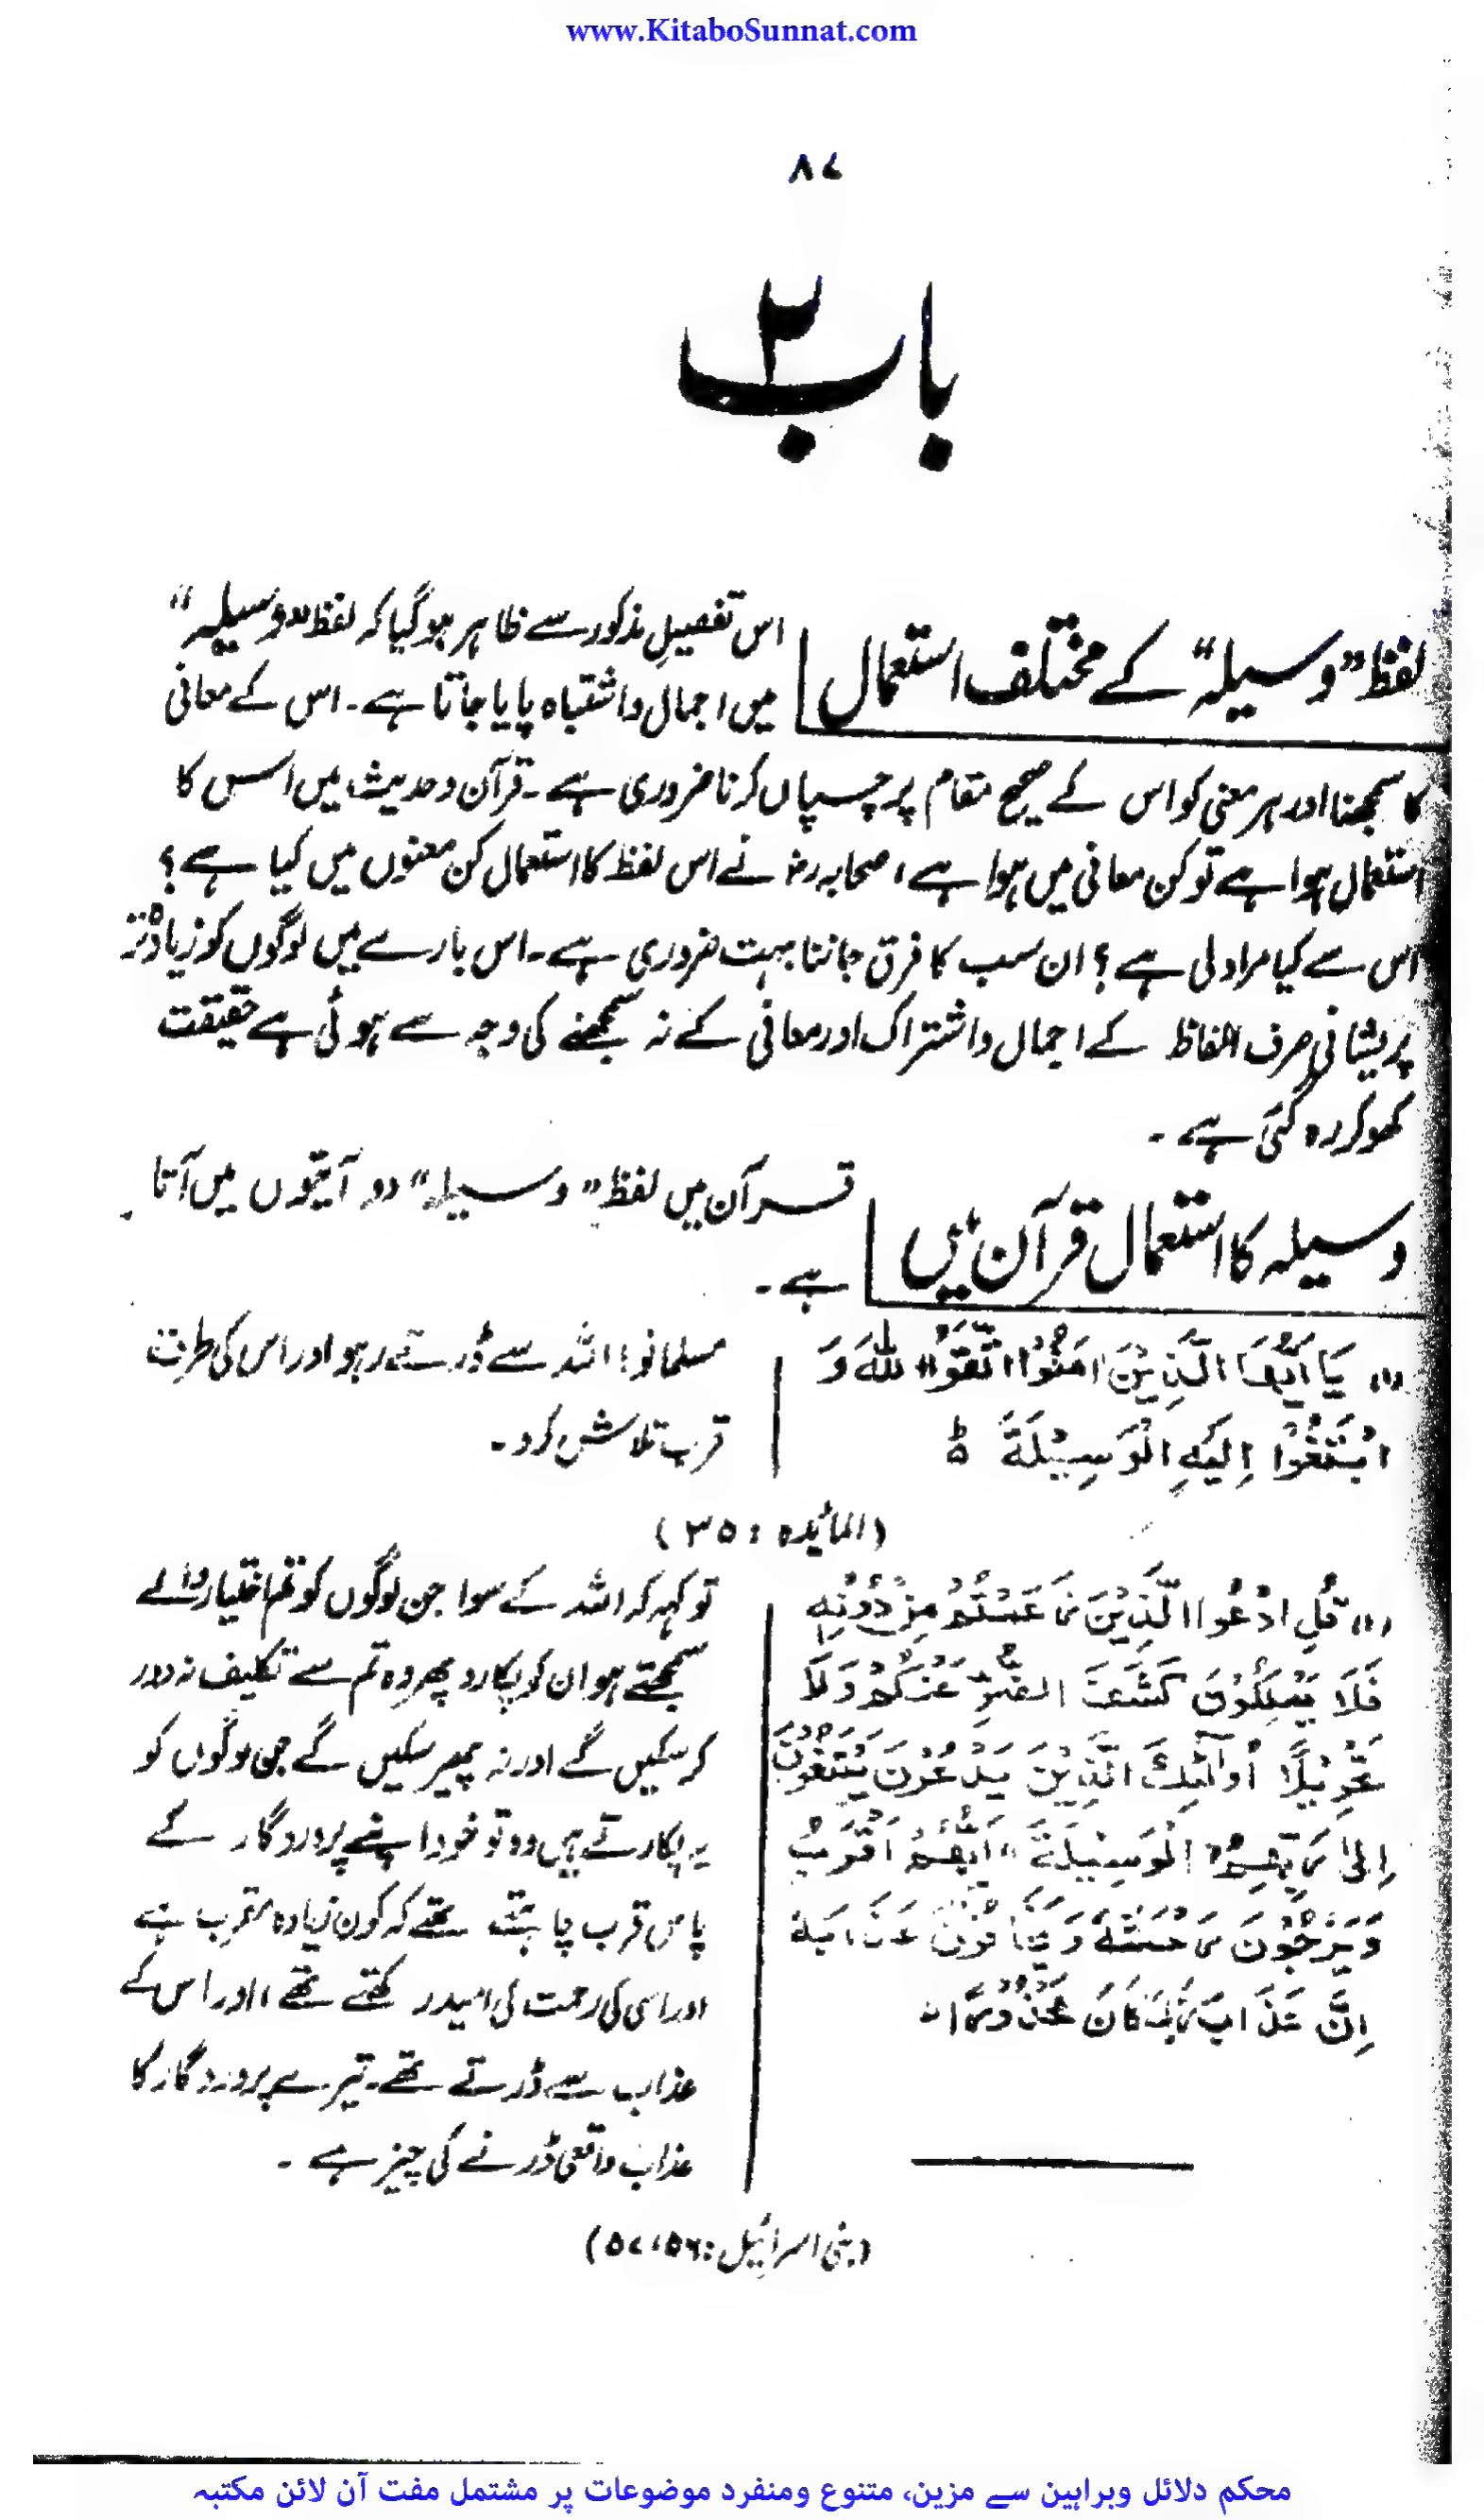 www.KitaboSunnat.com
۸۷
باب ۲
لفظ "وسیلہ" کے مختلف استعمال
اس تفصیلِ مذکور سے ظاہر ہوگیا کہ لفظ "وسیلہ"
میں اجمال و اشتباہ پایا جاتا ہے۔ اس کے معانی
کا سمجھنا اور ہر معنی کو اس کے صحیح مقام پر چسپاں کرنا ضروری ہے۔ قرآن و حدیث میں اس کا
استعمال ہوا ہے تو کن معانی میں ہوا ہے، صحابہ رضؓ نے اس لفظ کا استعمال کن معنوں میں کیا ہے؟
اس سے کیا مراد لی ہے؟ ان سب کا فرق جاننا بہت ضروری ہے۔ اس بارے میں لوگوں کو زیادہ تر
پریشانی صرف الفاظ کے اجمال و اشتراک اور معانی کے نہ سمجھنے کی وجہ سے ہوئی ہے حقیقت
کھو کر رہ گئی ہے۔
وسیلہ کا استعمال قرآن میں
قرآن میں لفظ "وسیلہ" دو آیتوں میں آتا
ہے۔
(۱) يَا أَيُّهَا الَّذِيْنَ اٰمَنُوا اتَّقُوا اللهَ وَ
ابْتَغُوْا اِلَيْهِ الْوَسِيْلَةَ ط
مسلمانو! اللہ سے ڈرتے رہو اور اس کی طرف
قرب تلاش کرو۔
(المائدہ : ۳۵)
قُلِ ادْعُوا الَّذِيْنَ زَعَمْتُمْ مِنْ دُوْنِهٖ
فَلَا يَمْلِكُوْنَ كَشْفَ الضُّرِّ عَنْكُمْ وَلَا
تَحْوِيْلًا اُولٰٓئِكَ الَّذِيْنَ يَدْعُوْنَ يَبْتَغُوْنَ
اِلىٰ رَبِّهِمُ الْوَسِيْلَةَ اَيُّهُمْ اَقْرَبُ
وَيَرْجُوْنَ رَحْمَتَهٗ وَيَخَافُوْنَ عَذَابَهٗ
اِنَّ عَذَابَ رَبِّكَ كَانَ مَحْذُوْرًا۔
تو کہہ کہ اللہ کے سوا جن لوگوں کو تم اختیار والے
سمجھتے ہو ان کو پکارو پھر وہ تم سے تکلیف نہ دور
کرسکیں گے اور نہ پھیر سکیں گے جن لوگوں کو
یہ پکارتے ہیں وہ تو خود اپنے پروردگار کے
پاس قرب چاہتے تھے کہ کون زیادہ مقرب ہے
اور اسی کی رحمت کی امید رکھتے تھے، اور اس کے
عذاب سے ڈرتے تھے۔ تیرے پروردگار کا
عذاب واقعی ڈرنے کی چیز ہے۔
(بنی اسرائیل: ۵۶، ۵۷)
محکم دلائل وبراہین سے مزین، متنوع ومنفرد موضوعات پر مشتمل مفت آن لائن مکتبہ